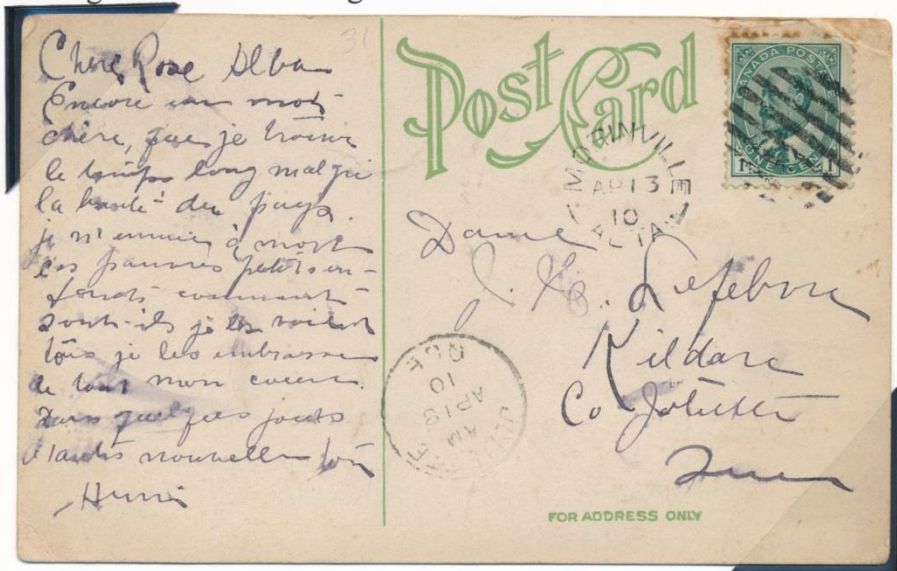 31
Chère Rose Alba
Encore un mot
chère, que je trouve
le temps long malgré
la beauté du pays.
je m'ennuie à mort
les pauvres petits en-
fants comment
sont-ils je les
tous je les embrasse
de tout mon coeur.
Dans quelques jours
d'autres nouvelles ton
Henri
Post Card
CANADA POSTAGE
ONE CENT
1 1
MORINVILLE
AP 13
10
ALTA
Dame
J. E. Lefebvre
Kildare
Co Joliette
Que
AM
AP 19
10
QUE
FOR ADDRESS ONLY